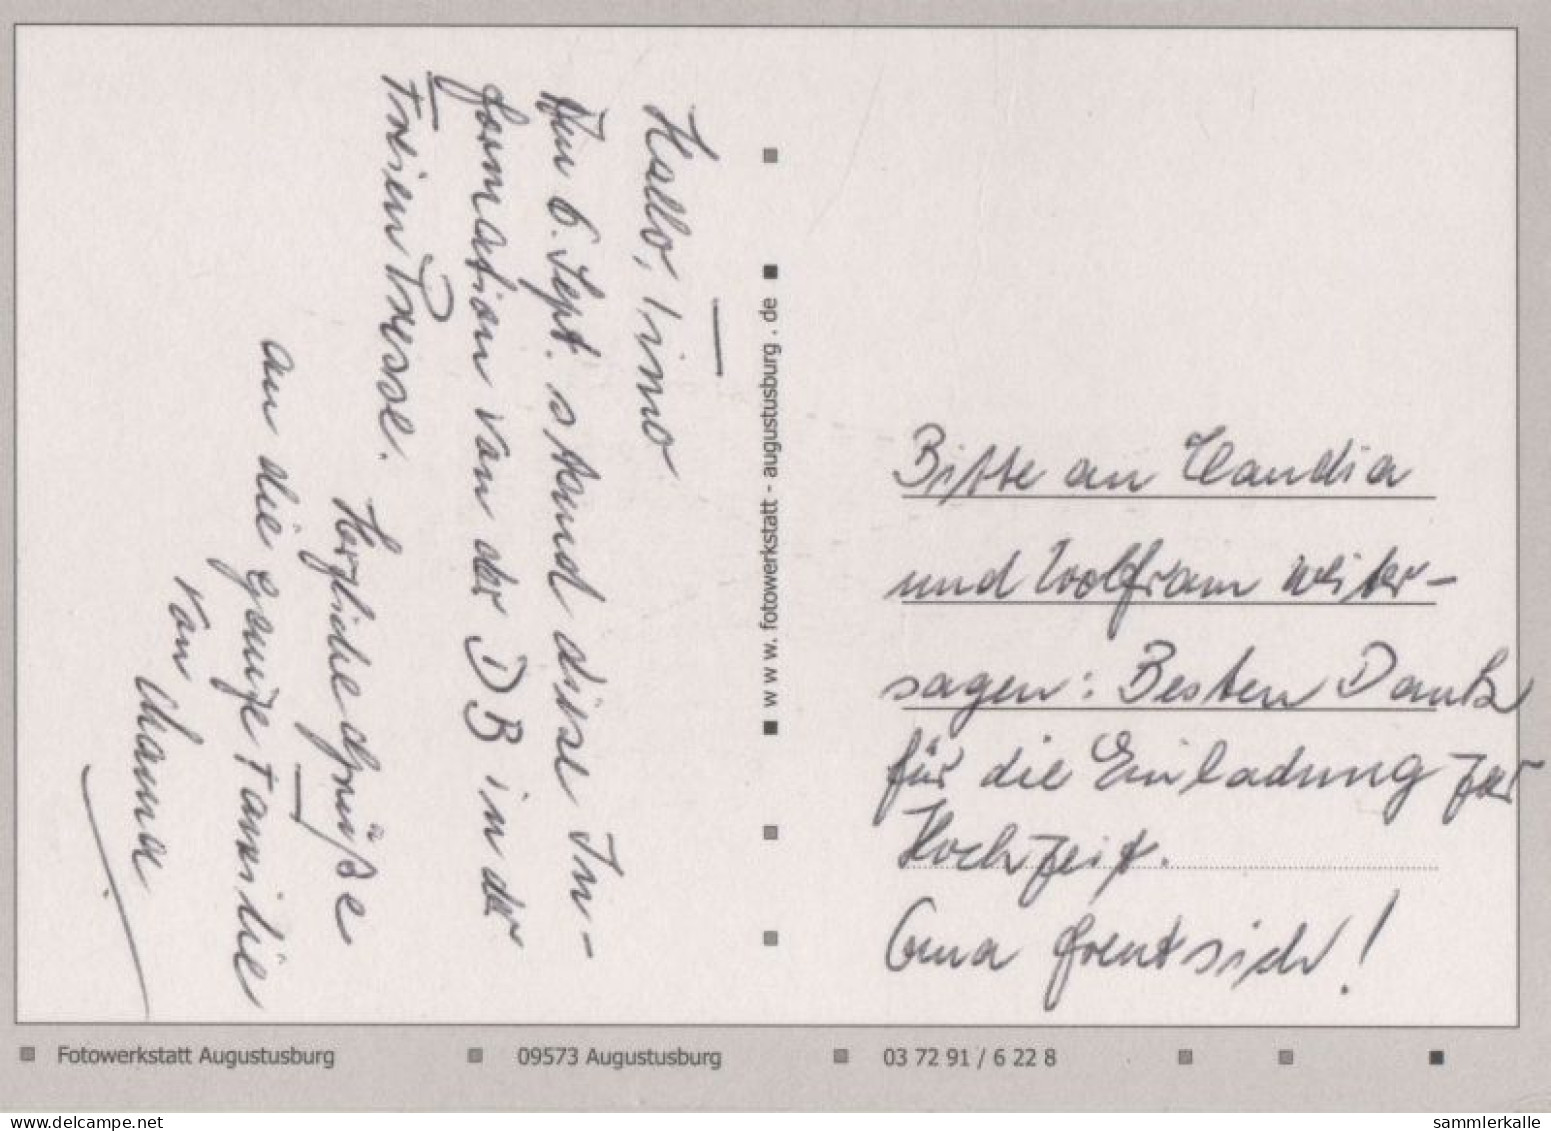 Hallo, Timo
Am 6. Sept. stand diese In-
formation von der DB in der
Freien Presse.
Herzliche Grüße
an die ganze Familie
von Mama
www.fotowerkstatt-augustusburg.de
Bitte an Claudia
und Wolfram weiter-
sagen: Besten Dank
für die Einladung zur
Hochzeit.
Oma freut sich!
Fotowerkstatt Augustusburg
09573 Augustusburg
03 72 91 / 6 22 8
sammlerkalle